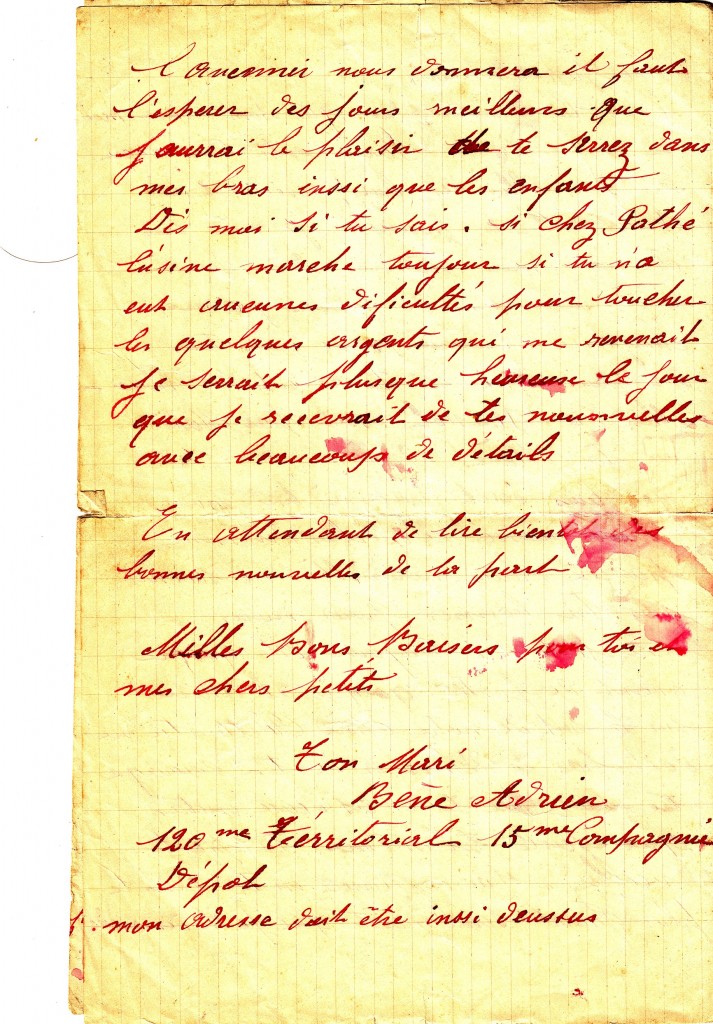 l'avennir nous donnera il faut
l'esperer des jours meilleurs que
j'aurrai le plaisir de te serrez dans
mes bras inssi que les enfants
Dis moi si tu sais. si chez Pathé
l'usine marche toujour si tu n'a
eut aucunes dificultés pour toucher
les quelques argents qui me revenait
Je serrait plusque heureuse le jour
que je recevrait de tes nouvelles
avec beaucoup de détails
En attendant de lire bientot des
bonnes nouvelles de ta part
Milles Bons Baisers pour toi et
mes chers petits
Ton Mari
Adrien
120me Térritorial 15me Compagnie
Dépot
mon adresse doit être inssi deussus